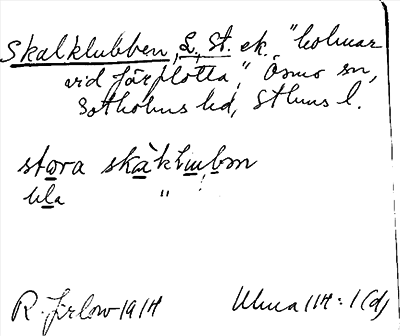 Skalklubben, L., St. ek. "holmar
vid Järflotta", Ösmo sn,
Sotholms hd, Sthms l.
stora skàklubm
lila "
R. Jirlow 1914
114:1(d)